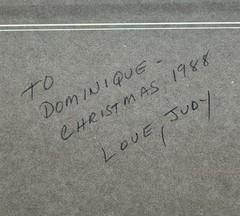 TO
DOMINIQUE-
CHRISTMAS 1988
LOVE, JUDY